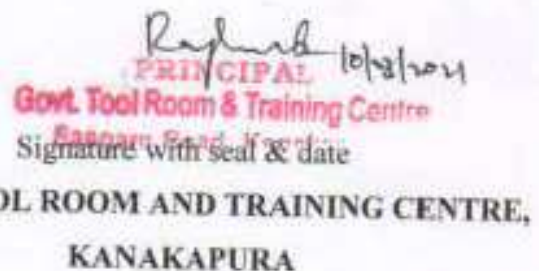 PRINCIPAL
Govt. Tool Room & Training Centre
Signature with seal & date
OL ROOM AND TRAINING CENTRE,
KANAKAPURA